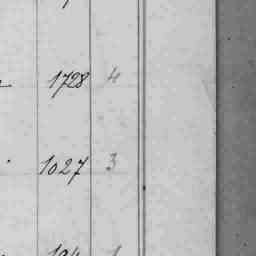 1728 4
1027 3